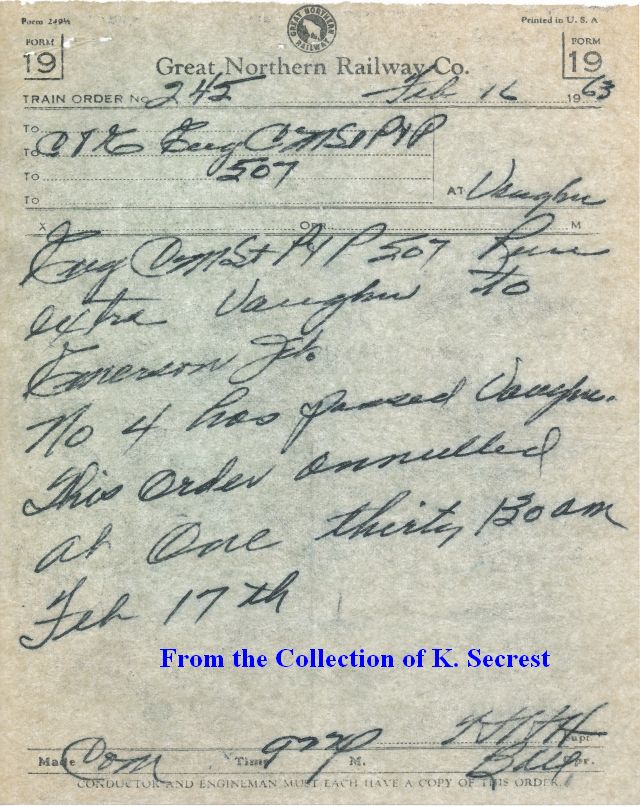 Form 249½
Printed in U. S. A
FORM
19
GREAT NORTHERN RAILWAY
FORM
19
Great Northern Railway Co.
TRAIN ORDER No 245 Feb 16 1963
To
To C&E Eng CMStP&P
To 507
To
AT Vaughn
X OPR. M
Eng CMStP&P 507 Run
extra Vaughn to
Emerson Jct.
No 4 has passed Vaughn.
This order annulled
at One thirty 130 am
Feb 17th
From the Collection of K. Secrest
Supt.
Made Com Time M. Opr.
CONDUCTOR AND ENGINEMAN MUST EACH HAVE A COPY OF THIS ORDER.